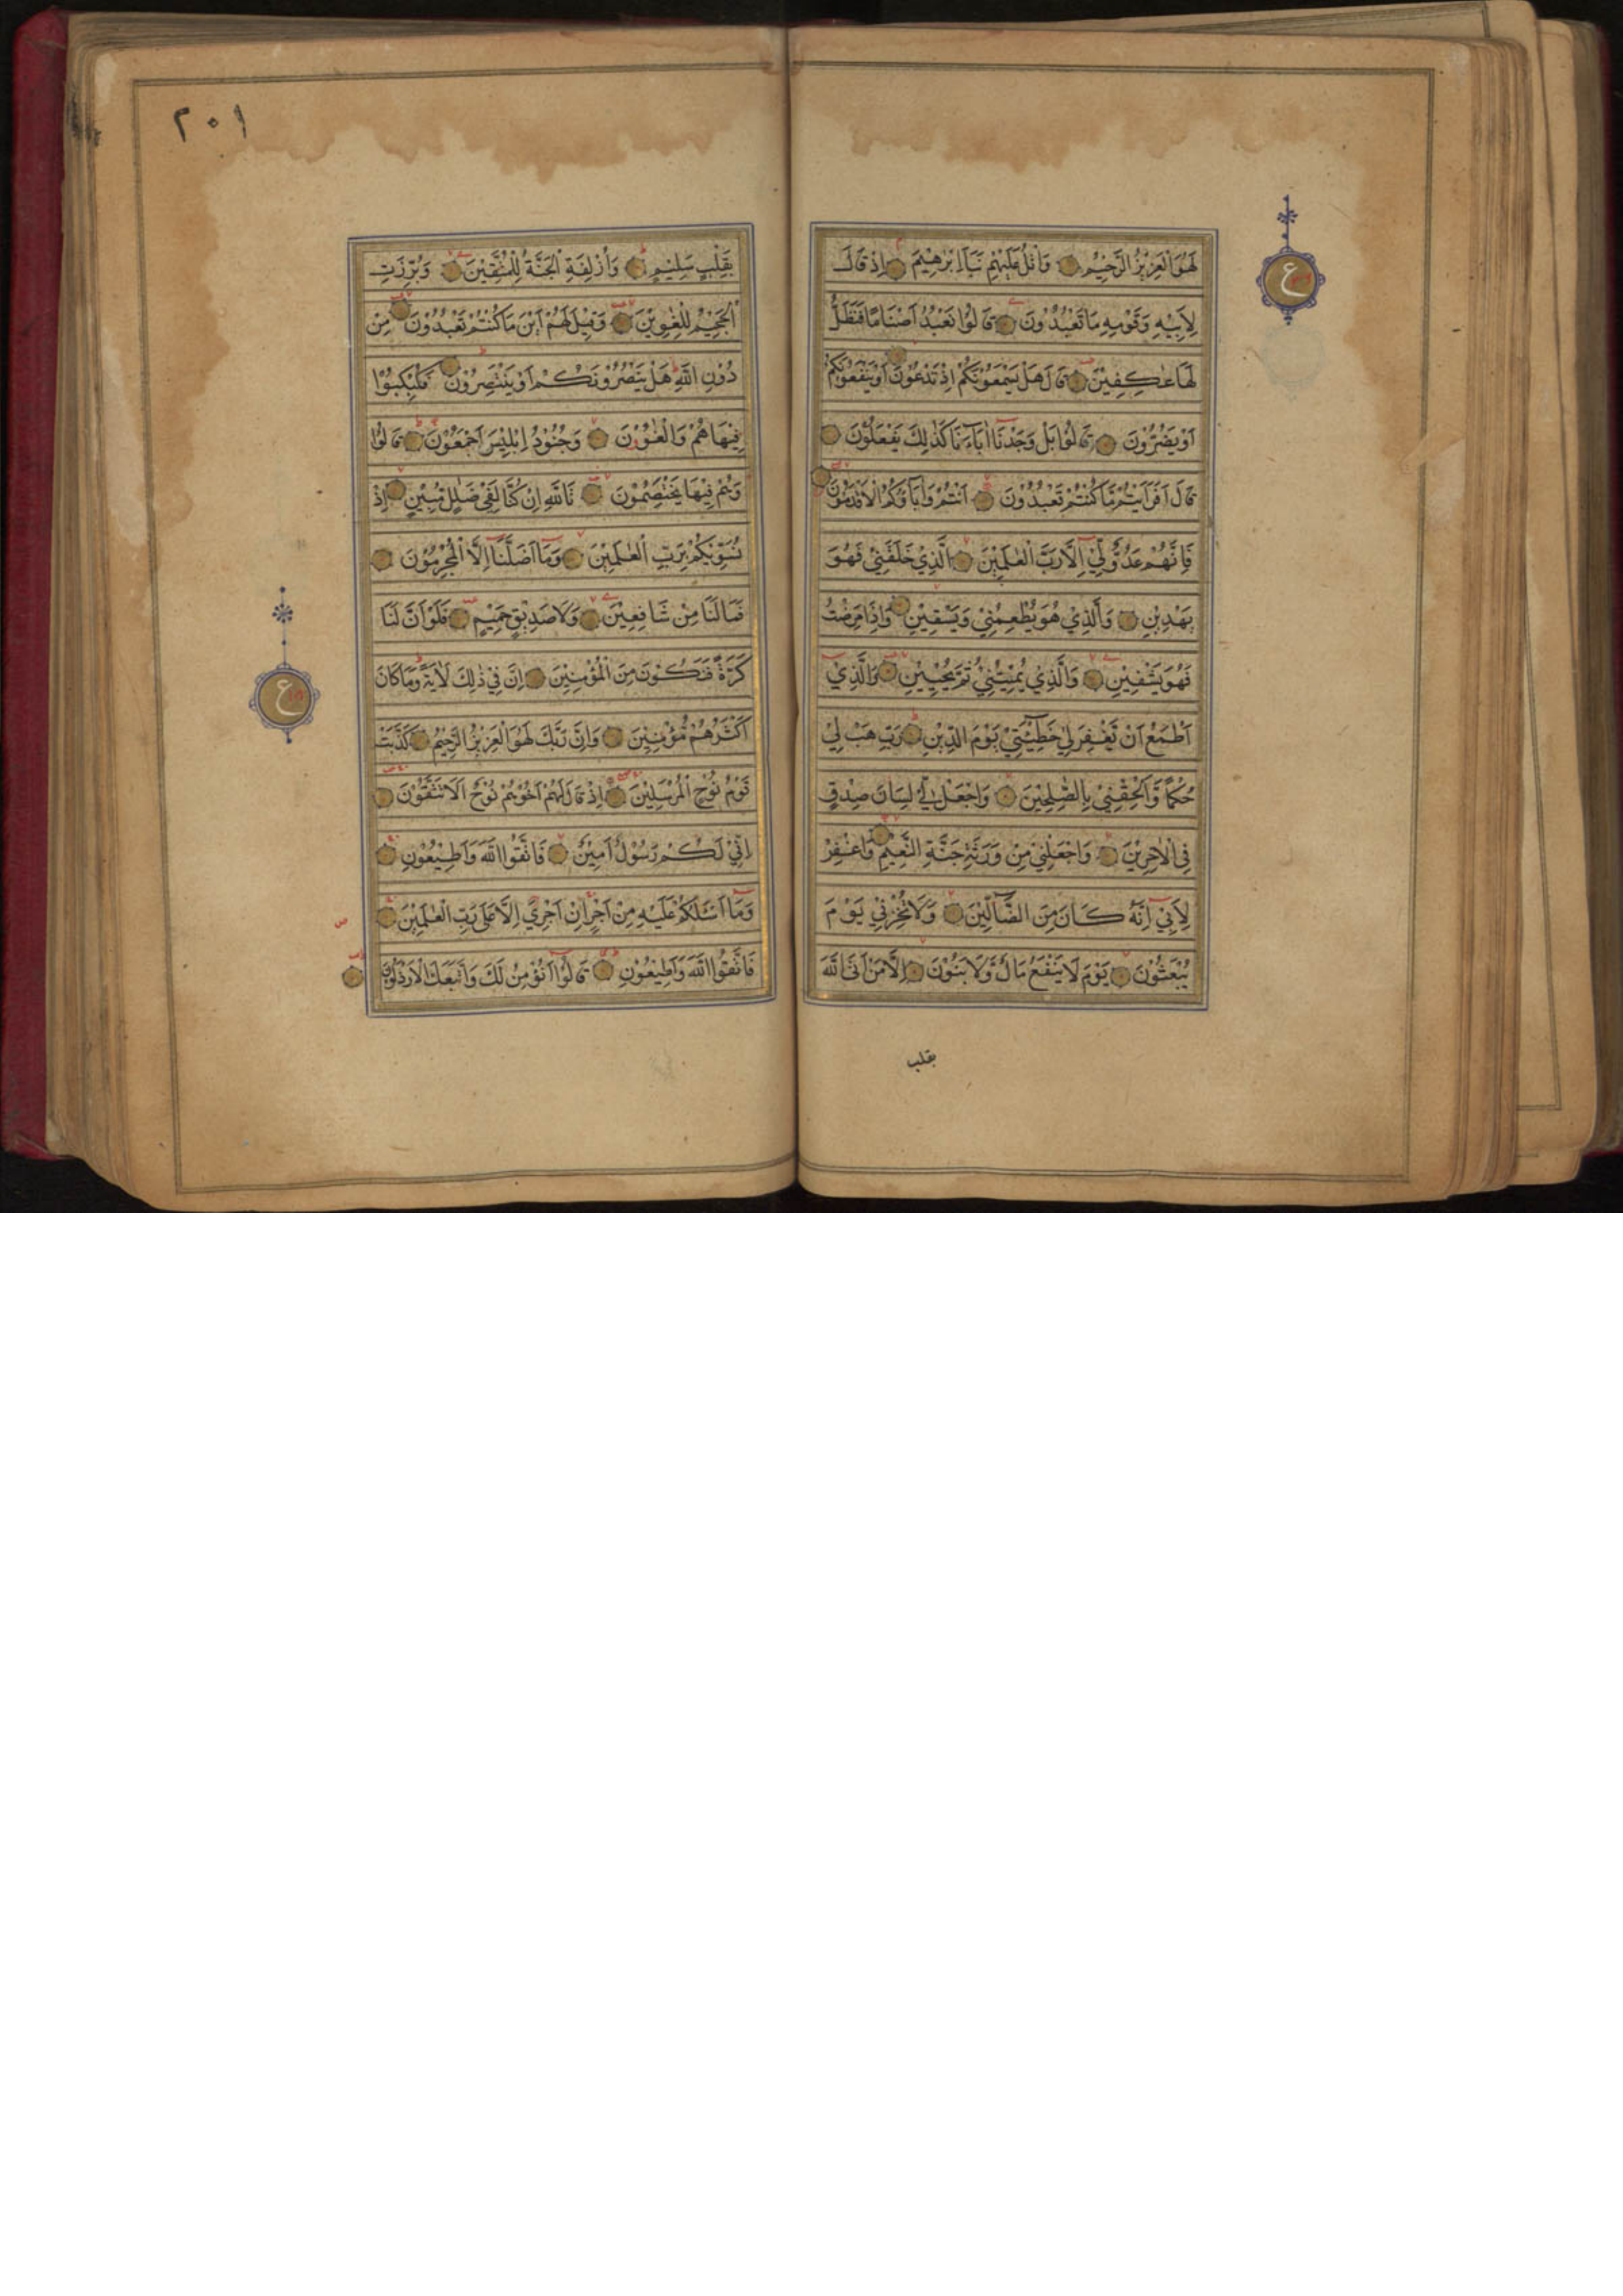 لَهُوَ الْعَزِيْزُ الرَّحِيْمُ وَاتْلُ عَلَيْهِمْ نَبَاَ اِبْرٰهِيْمَ اِذْ قَالَ
لِاَبِيْهِ وَقَوْمِهِ مَا تَعْبُدُوْنَ قَالُوْا نَعْبُدُ اَصْنَامًا فَنَظَلُّ
لَهَا عٰكِفِيْنَ قَالَ هَلْ يَسْمَعُوْنَكُمْ اِذْ تَدْعُوْنَ اَوْ يَنْفَعُوْنَكُمْ
اَوْ يَضُرُّوْنَ قَالُوْا بَلْ وَجَدْنَا اٰبَاءَنَا كَذٰلِكَ يَفْعَلُوْنَ
قَالَ اَفَرَاَيْتُمْ مَّا كُنْتُمْ تَعْبُدُوْنَ اَنْتُمْ وَاٰبَاؤُكُمُ الْاَقْدَمُوْنَ
فَاِنَّهُمْ عَدُوٌّ لِّيْ اِلَّا رَبَّ الْعٰلَمِيْنَ الَّذِيْ خَلَقَنِيْ فَهُوَ
يَهْدِيْنِ وَالَّذِيْ هُوَ يُطْعِمُنِيْ وَيَسْقِيْنِ وَاِذَا مَرِضْتُ
فَهُوَ يَشْفِيْنِ وَالَّذِيْ يُمِيْتُنِيْ ثُمَّ يُحْيِيْنِ وَالَّذِيْ
اَطْمَعُ اَنْ يَّغْفِرَ لِيْ خَطِيْئَتِيْ يَوْمَ الدِّيْنِ رَبِّ هَبْ لِيْ
حُكْمًا وَّاَلْحِقْنِيْ بِالصّٰلِحِيْنَ وَاجْعَلْ لِّيْ لِسَانَ صِدْقٍ
فِي الْاٰخِرِيْنَ وَاجْعَلْنِيْ مِنْ وَرَثَةِ جَنَّةِ النَّعِيْمِ وَاغْفِرْ
لِاَبِيْ اِنَّهُ كَانَ مِنَ الضَّالِّيْنَ وَلَا تُخْزِنِيْ يَوْمَ
يُبْعَثُوْنَ يَوْمَ لَا يَنْفَعُ مَالٌ وَّلَا بَنُوْنَ اِلَّا مَنْ اَتَى اللّٰهَ
بقلب
٢٠١
بِقَلْبٍ سَلِيْمٍ وَاُزْلِفَتِ الْجَنَّةُ لِلْمُتَّقِيْنَ وَبُرِّزَتِ
الْجَحِيْمُ لِلْغٰوِيْنَ وَقِيْلَ لَهُمْ اَيْنَ مَا كُنْتُمْ تَعْبُدُوْنَ مِنْ
دُوْنِ اللّٰهِ هَلْ يَنْصُرُوْنَكُمْ اَوْ يَنْتَصِرُوْنَ فَكُبْكِبُوْا
فِيْهَا هُمْ وَالْغٰوٗنَ وَجُنُوْدُ اِبْلِيْسَ اَجْمَعُوْنَ قَالُوْا
وَهُمْ فِيْهَا يَخْتَصِمُوْنَ تَاللّٰهِ اِنْ كُنَّا لَفِيْ ضَلٰلٍ مُّبِيْنٍ اِذْ
نُسَوِّيْكُمْ بِرَبِّ الْعٰلَمِيْنَ وَمَا اَضَلَّنَا اِلَّا الْمُجْرِمُوْنَ
فَمَا لَنَا مِنْ شَافِعِيْنَ وَلَا صَدِيْقٍ حَمِيْمٍ فَلَوْ اَنَّ لَنَا
كَرَّةً فَنَكُوْنَ مِنَ الْمُؤْمِنِيْنَ اِنَّ فِيْ ذٰلِكَ لَاٰيَةً وَمَا كَانَ
اَكْثَرُهُمْ مُّؤْمِنِيْنَ وَاِنَّ رَبَّكَ لَهُوَ الْعَزِيْزُ الرَّحِيْمُ كَذَّبَتْ
قَوْمُ نُوْحٍ الْمُرْسَلِيْنَ اِذْ قَالَ لَهُمْ اَخُوْهُمْ نُوْحٌ اَلَا تَتَّقُوْنَ
اِنِّيْ لَكُمْ رَسُوْلٌ اَمِيْنٌ فَاتَّقُوا اللّٰهَ وَاَطِيْعُوْنِ
وَمَا اَسْئَلُكُمْ عَلَيْهِ مِنْ اَجْرٍ اِنْ اَجْرِيَ اِلَّا عَلٰى رَبِّ الْعٰلَمِيْنَ
فَاتَّقُوا اللّٰهَ وَاَطِيْعُوْنِ قَالُوْا اَنُؤْمِنُ لَكَ وَاتَّبَعَكَ الْاَرْذَلُوْنَ
ع
ع